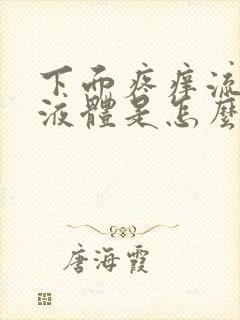 下面疼痒流
液體是怎麼
唐海霞